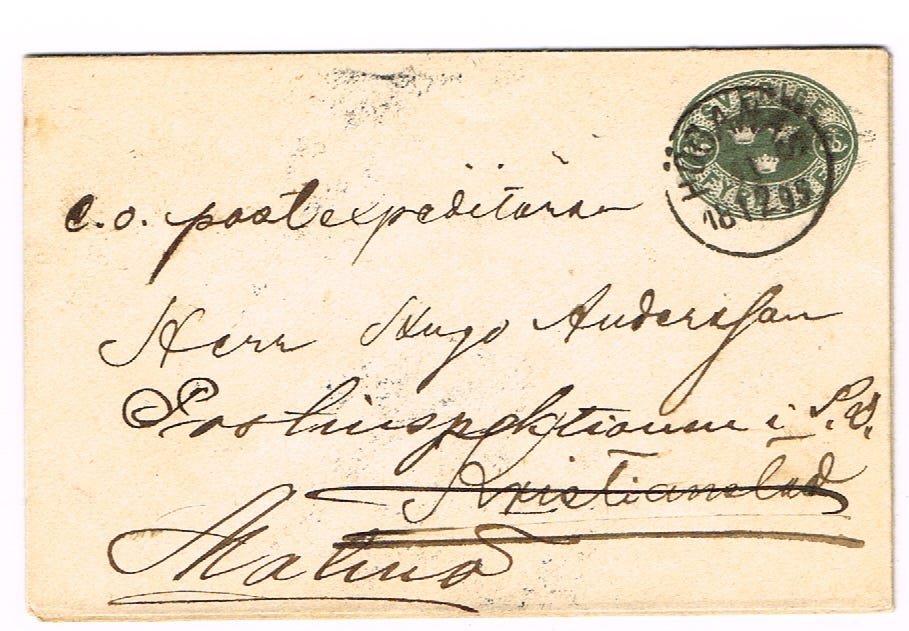 SVERIGE
FYRA
HÖGANÄS
18 12 95
e. o. postexpeditören
Herr Hugo Andersson
Postinspektionen i S. D.
Kristianstad
Malmö